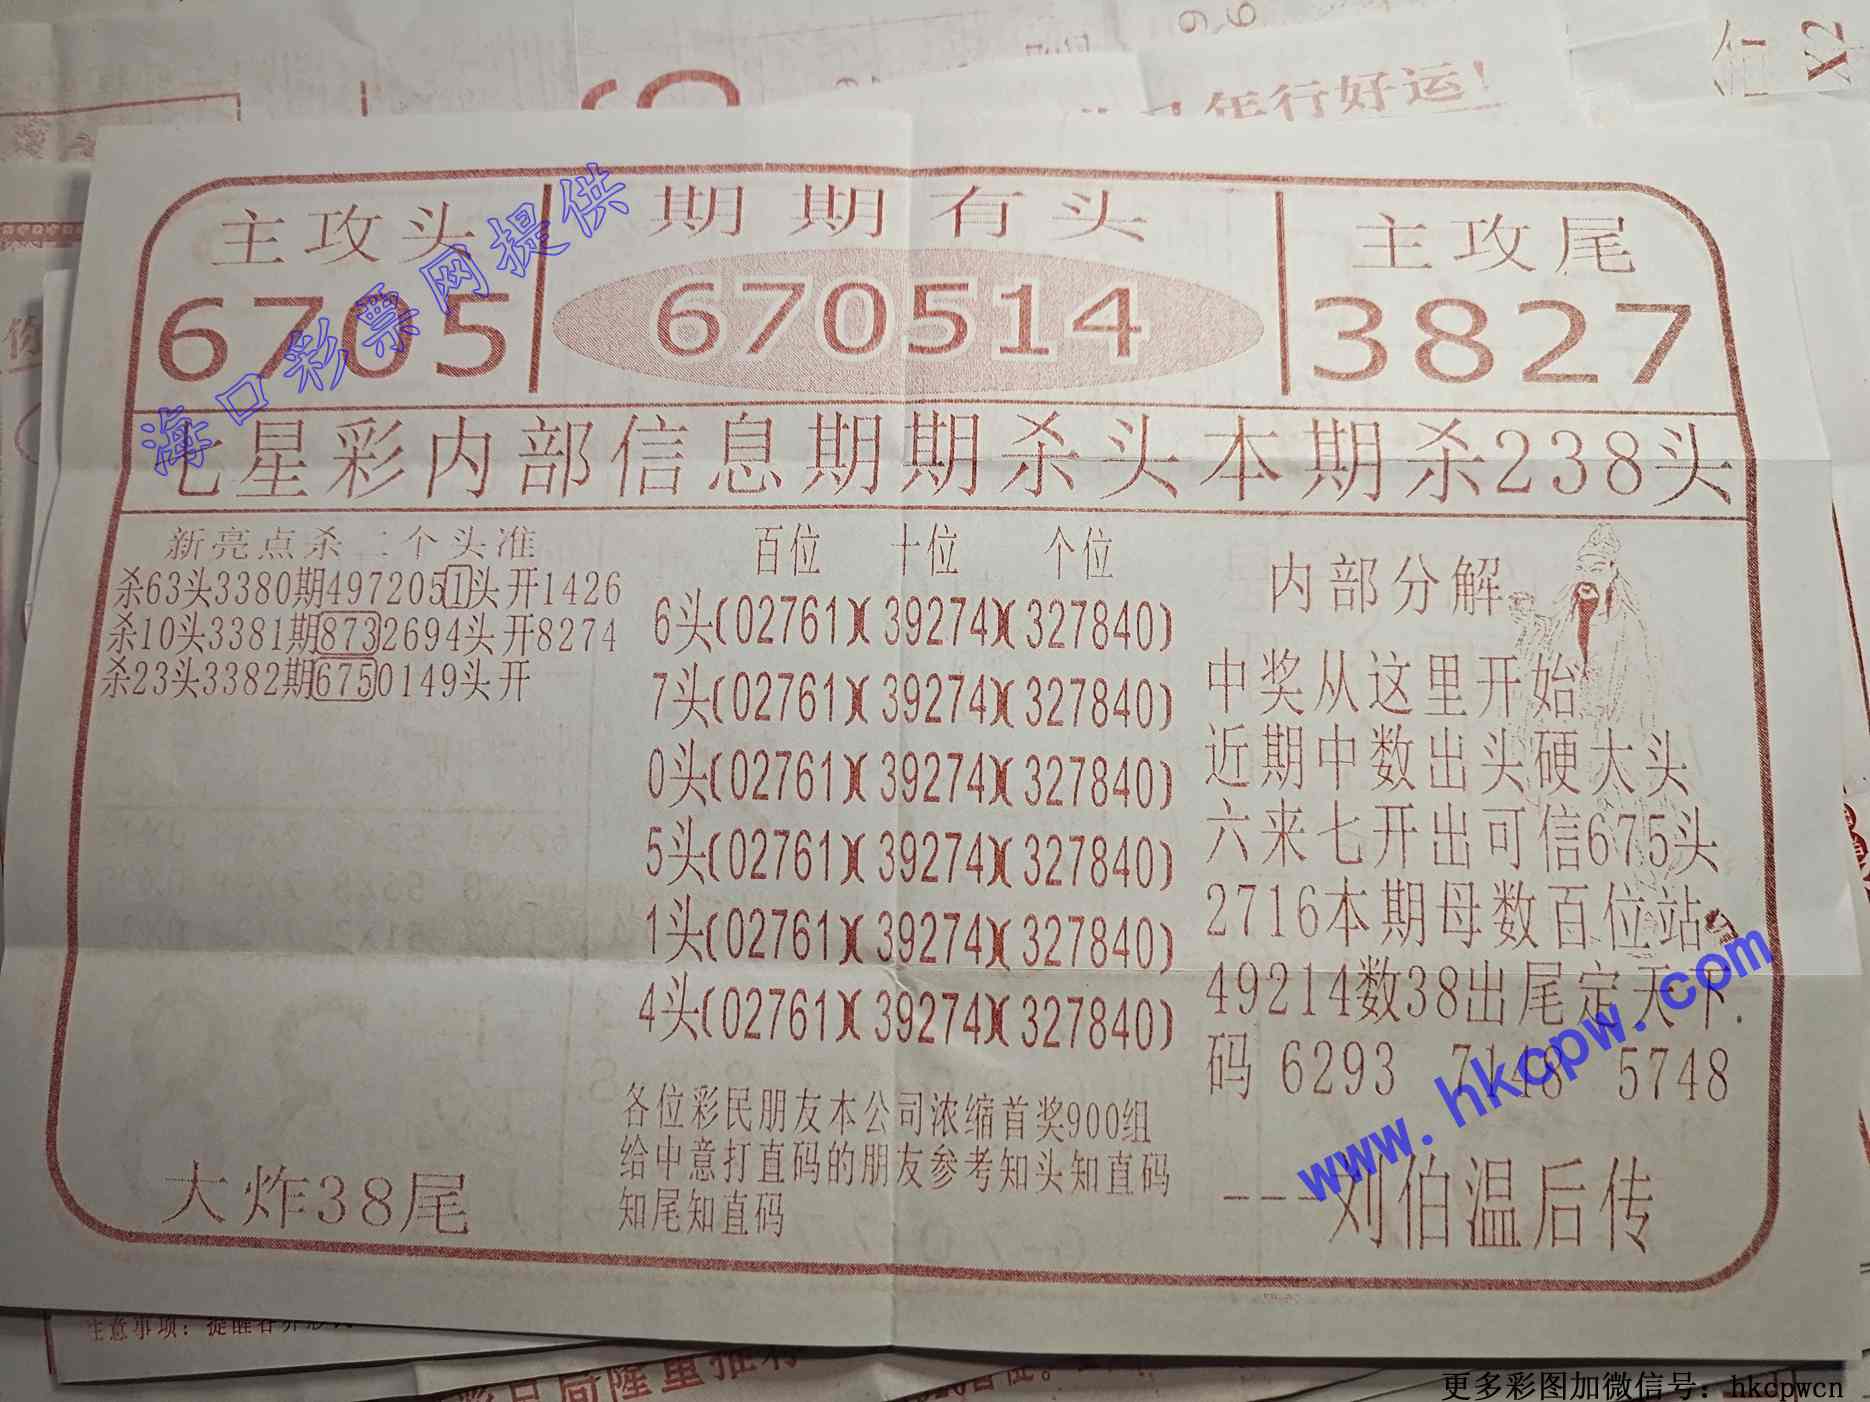 年行好运！
X2
主攻头
期期有头
主攻尾
6705
670514
3827
七星彩内部信息期期杀头本期杀238头
新亮点杀二个头准
杀63头3380期4972051头开1426
杀10头3381期8732694头开8274
杀23头3382期6750149头开
大炸38尾
百位 十位 个位
6头(02761)(39274)(327840)
7头(02761)(39274)(327840)
0头(02761)(39274)(327840)
5头(02761)(39274)(327840)
1头(02761)(39274)(327840)
4头(02761)(39274)(327840)
各位彩民朋友本公司浓缩首奖900组
给中意打直码的朋友参考知头知直码
知尾知直码
内部分解
中奖从这里开始
近期中数出头硬大头
六来七开出可信675头
2716本期母数百位站
49214数38出尾定天下.
码 6293 7148 5748
---刘伯温后传
海口彩票网提供
www.hkcpw.com
注意事项：提醒各界彩
更多彩图加微信号：hkcpwcn